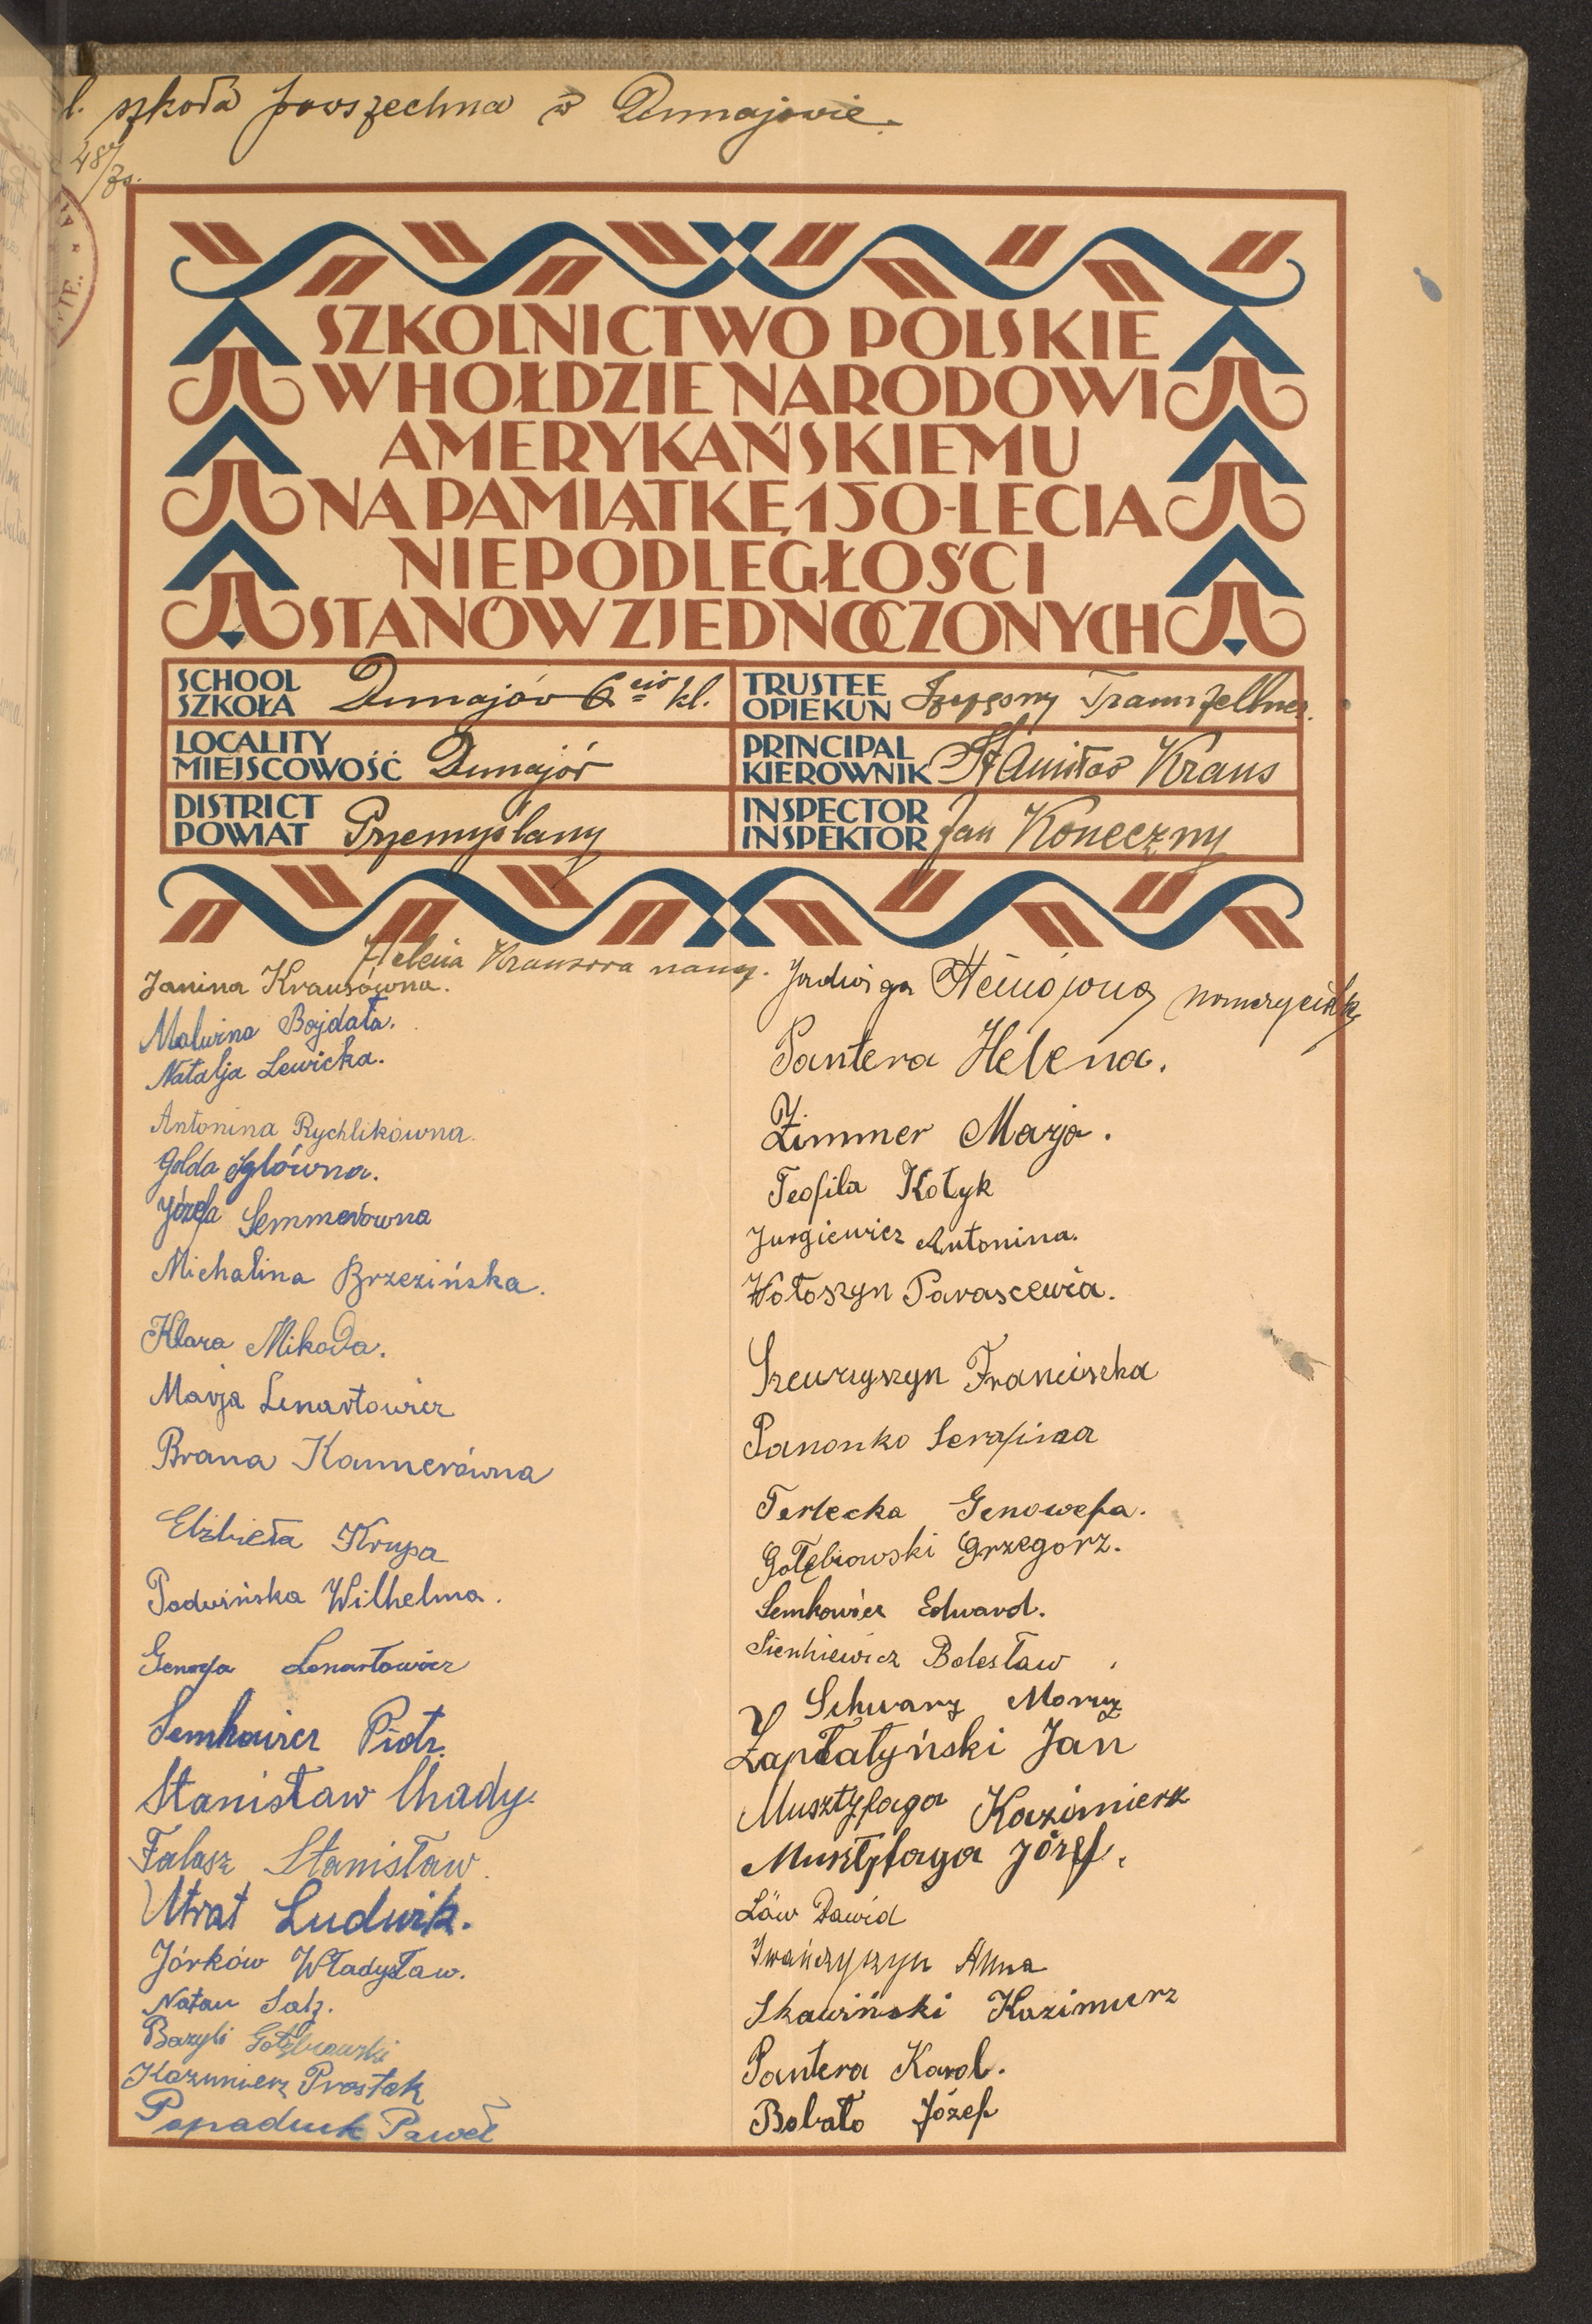 szkoła powszechna w Dunajowie.
487/30.
SZKOLNICTWO POLSKIE
W HOŁDZIE NARODOWI
AMERYKAŃSKIEMU
NA PAMIĄTKĘ 150-LECIA
NIEPODLEGŁOŚCI
STANÓW ZJEDNOCZONYCH
SCHOOL
SZKOŁA Dunajów 6cio kl.
TRUSTEE
OPIEKUN
LOCALITY
MIEJSCOWOŚĆ Dunajów
PRINCIPAL
KIEROWNIK Stanisław Kraus
DISTRICT
POWIAT Przemyślany
INSPECTOR
INSPEKTOR Jan Koneczny
Helena Krausowa naucz.
Janina Krausówna.
Malwina Bojdała.
Natalja Lewicka.
Antonina Rychlikówna.
Golda Iglówna.
Józefa Semmerówna
Michalina Brzezińska.
Klara Mikoda.
Marja Lenartowicz
Brana Kannerówna
Elżbieta Krupa
Podwińska Wilhelma.
Lenartowicz
Semkowicz Piotr.
Stanisław Chady.
Falasz Stanisław.
Utrat Ludwik.
Jórków Władysław.
Natan Salz.
Bazyli Gołębiowski
Kazimierz Prostak
Popaduk Paweł
Jadwiga nauczycielka
Pantera Helena.
Zimmer Marja.
Teofila Kotyk
Jurgiewicz Antonina.
Wołoszyn Parascewia.
Szewczyszyn Franciszka
Panonko Serafina
Terlecka Genowefa.
Gołębiowski Grzegorz.
Semkowicz Edward.
Sienkiewicz Bolesław
Schwarz Moryz
Zapłatyński Jan
Musztyfaga Kazimierz
Musztyfaga Józef.
Löw Dawid
Iwańczyszyn Anna
Skawiński Kazimierz
Pantera Karol.
Bobało Józef